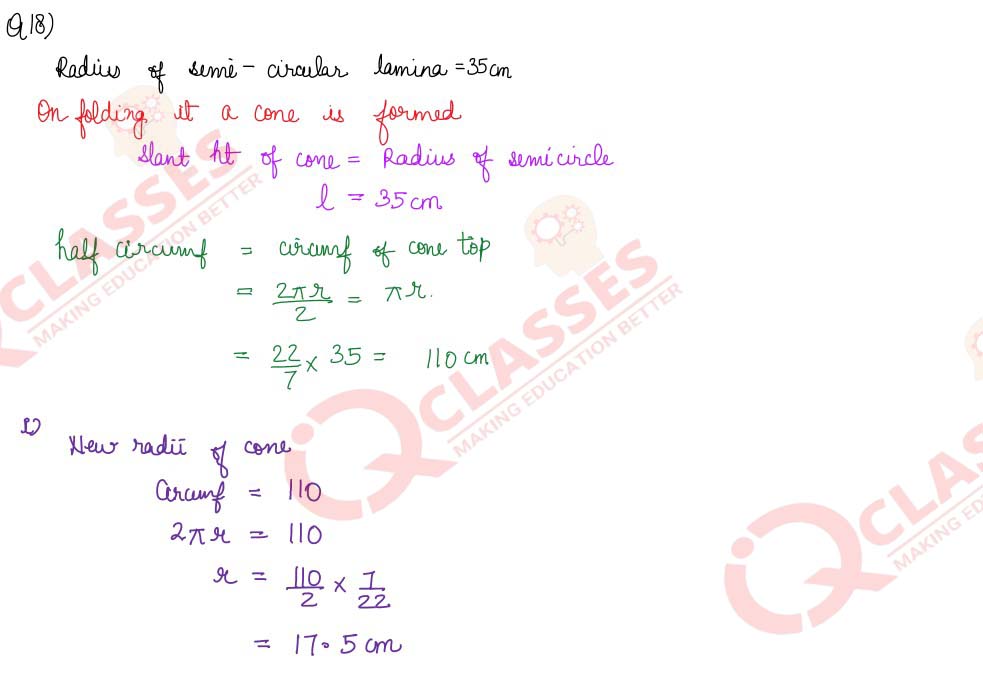 Q18)
Radius of semi-circular lamina = 35 cm
On folding it a cone is formed
Slant ht of cone = Radius of semicircle
l = 35 cm
half circumf = circumf of cone top
= 2πr/2 = πr.
= 22/7 × 35 = 110 cm
i)
New radii of cone
Circumf = 110
2πr = 110
r = 110/2 × 7/22
= 17.5 cm
IQ CLASSES
MAKING EDUCATION BETTER
IQ CLASSES
MAKING EDUCATION BETTER
IQ CLASSES
MAKING ED